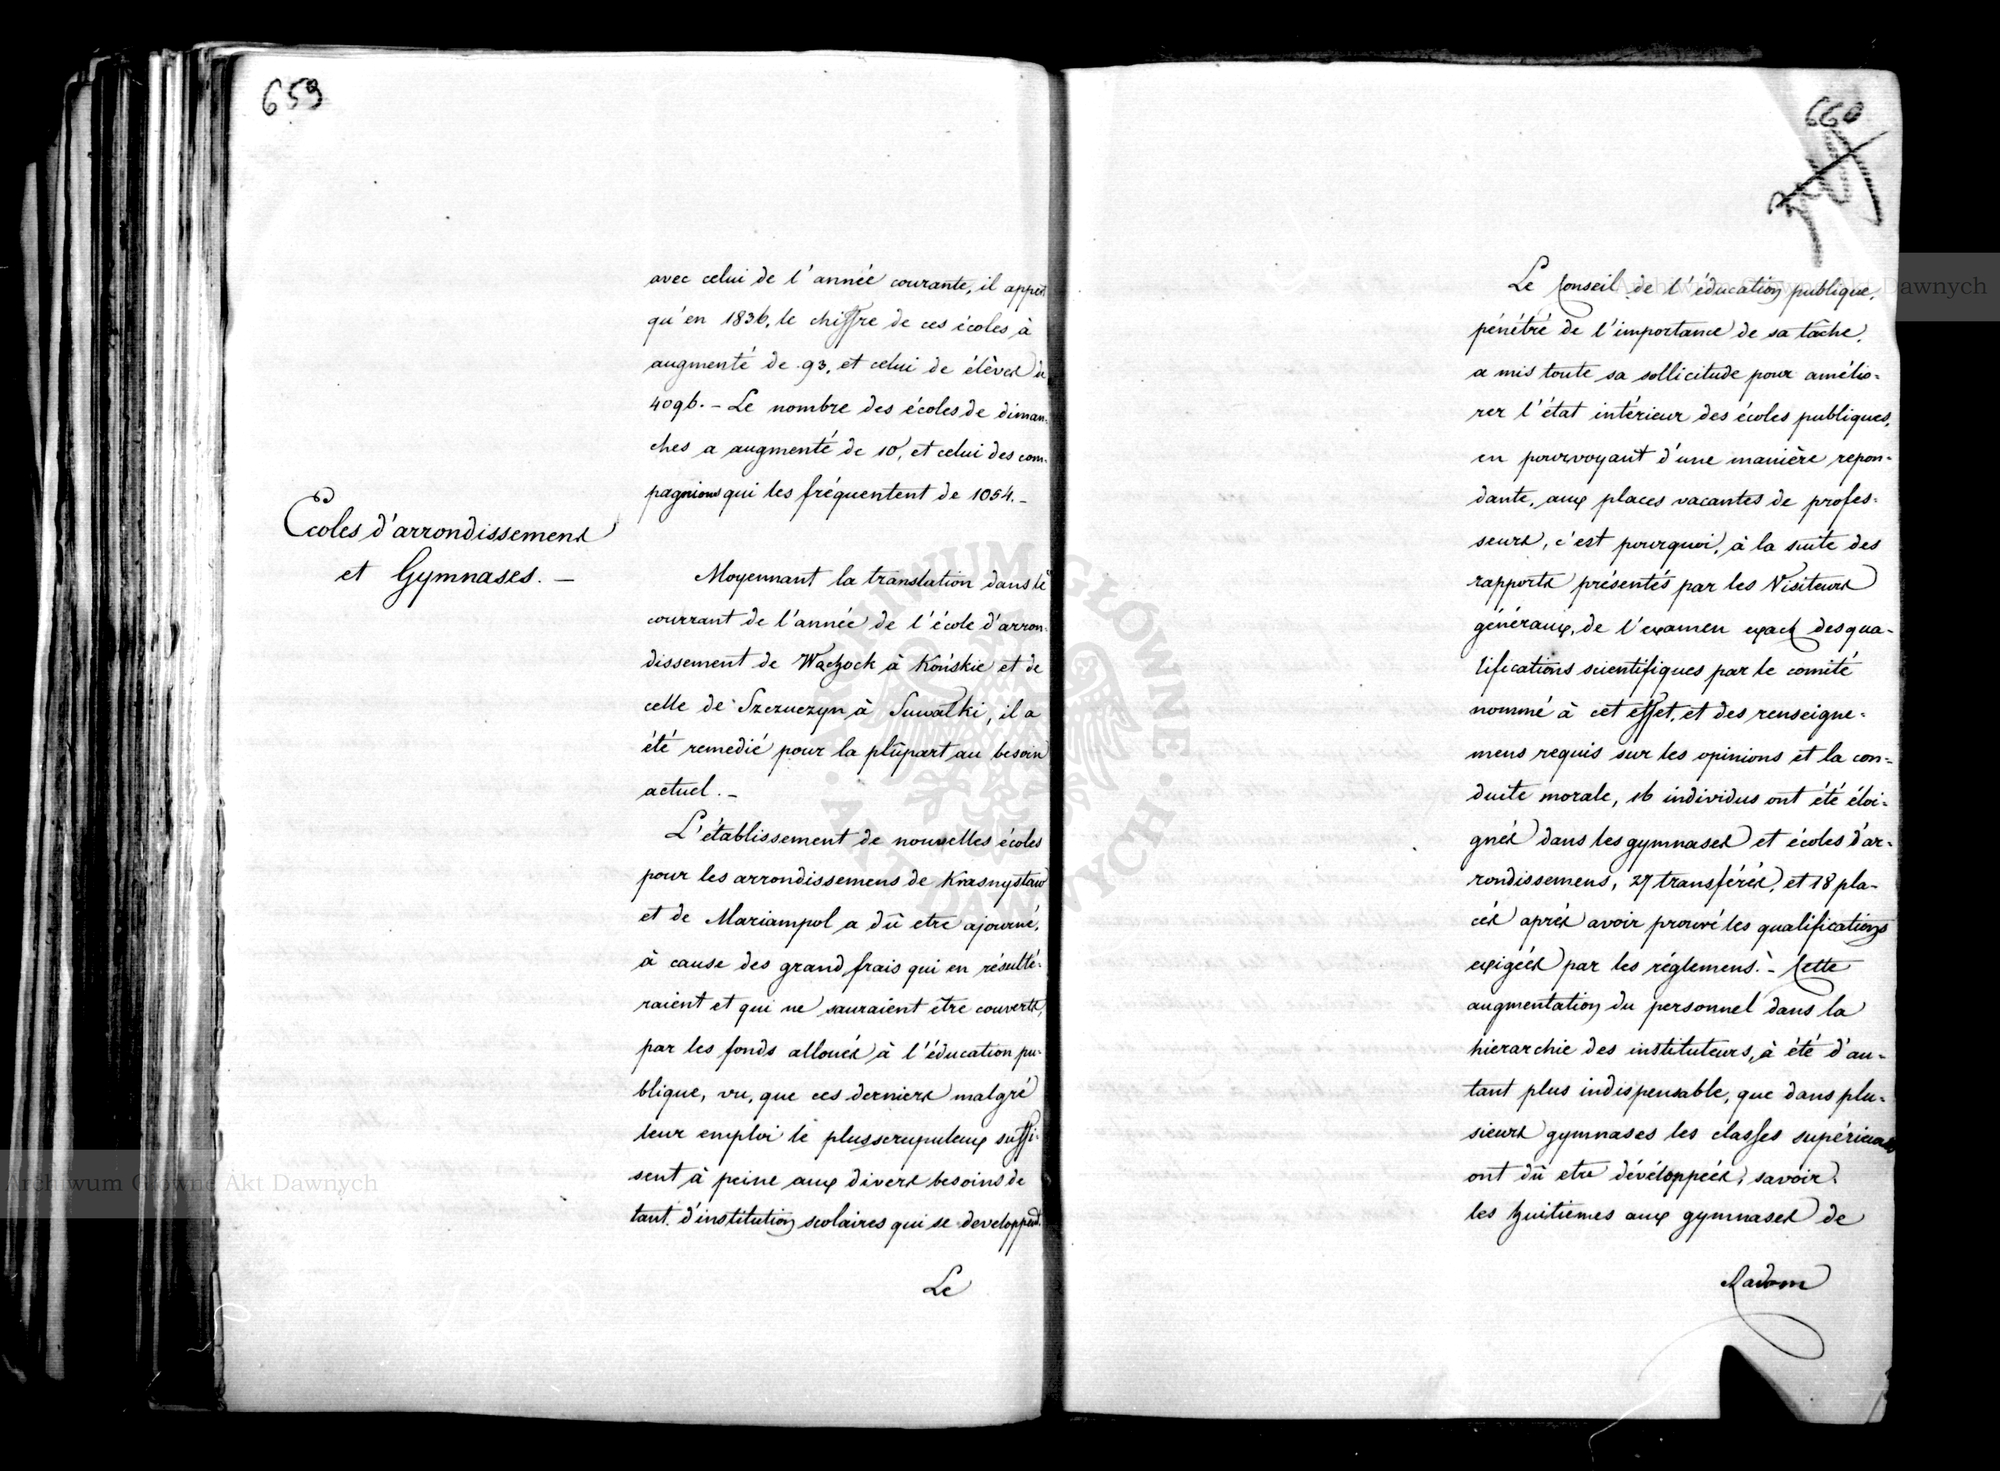 659
avec celui de l'année courante, il appert
qu'en 1836, le chiffre de ces écoles à
augmenté de 93, et celui de élèves de
4096. - Le nombre des écoles de diman-
ches a augmenté de 10, et celui des com-
pagnions qui les fréquentent de 1054. -
Ecoles d'arrondissemens
et Gymnases. -
Moyennant la translation dans le
courrant de l'année de l'école d'arron-
dissement de Wąchock à Końskie et de
celle de Szczuczyn à Suwałki, il a
été remedié pour la plûpart au besoin
actuel. -
L'établissement de nouvelles écoles
pour les arrondissemens de Krasnystaw
et de Mariampol a dû etre ajourné,
à cause des grand frais qui en résulté-
raient et qui ne sauraient être couverts,
par les fonds alloués à l'éducation pu-
blique, vu, que ces derniers malgré
leur emploi le plus scrupuleux suffi-
sent à peine aux divers besoins de
tant d'institution scolaires qui se developpent.
Le
660
Le Conseil de l'éducation publique,
pénétré de l'importance de sa tâche,
a mis toute sa sollicitude pour amélio-
rer l'état intérieur des écoles publiques,
en pourvoyant d'une manière repon-
dante, aux places vacantes de profes-
seurs, c'est pourquoi, à la suite des
rapports présentés par les Visiteurs
généraux, de l'examen exact des qua-
lifications scientifiques par le comité
nommé à cet effet, et des renseigne-
mens requis sur les opinions et la con-
duite morale, 16 individus ont été éloi-
gnés dans les gymnases et écoles d'ar-
rondissemens, 27 transférés, et 18 pla-
cés aprés avoir prouvé les qualifications
exigées par les réglemens. - Cette
augmentation du personnel dans la
hierarchie des instituteurs, à été d'au-
tant plus indispensable, que dans plu-
sieurs gymnases les classes supérieures
ont dû etre dévéloppées, savoir
les huitiemes aux gymnases de
Radom
Archiwum Główne Akt Dawnych
Archiwum Główne Akt Dawnych
ARCHIWUM GŁÓWNE · AKT DAWNYCH ·